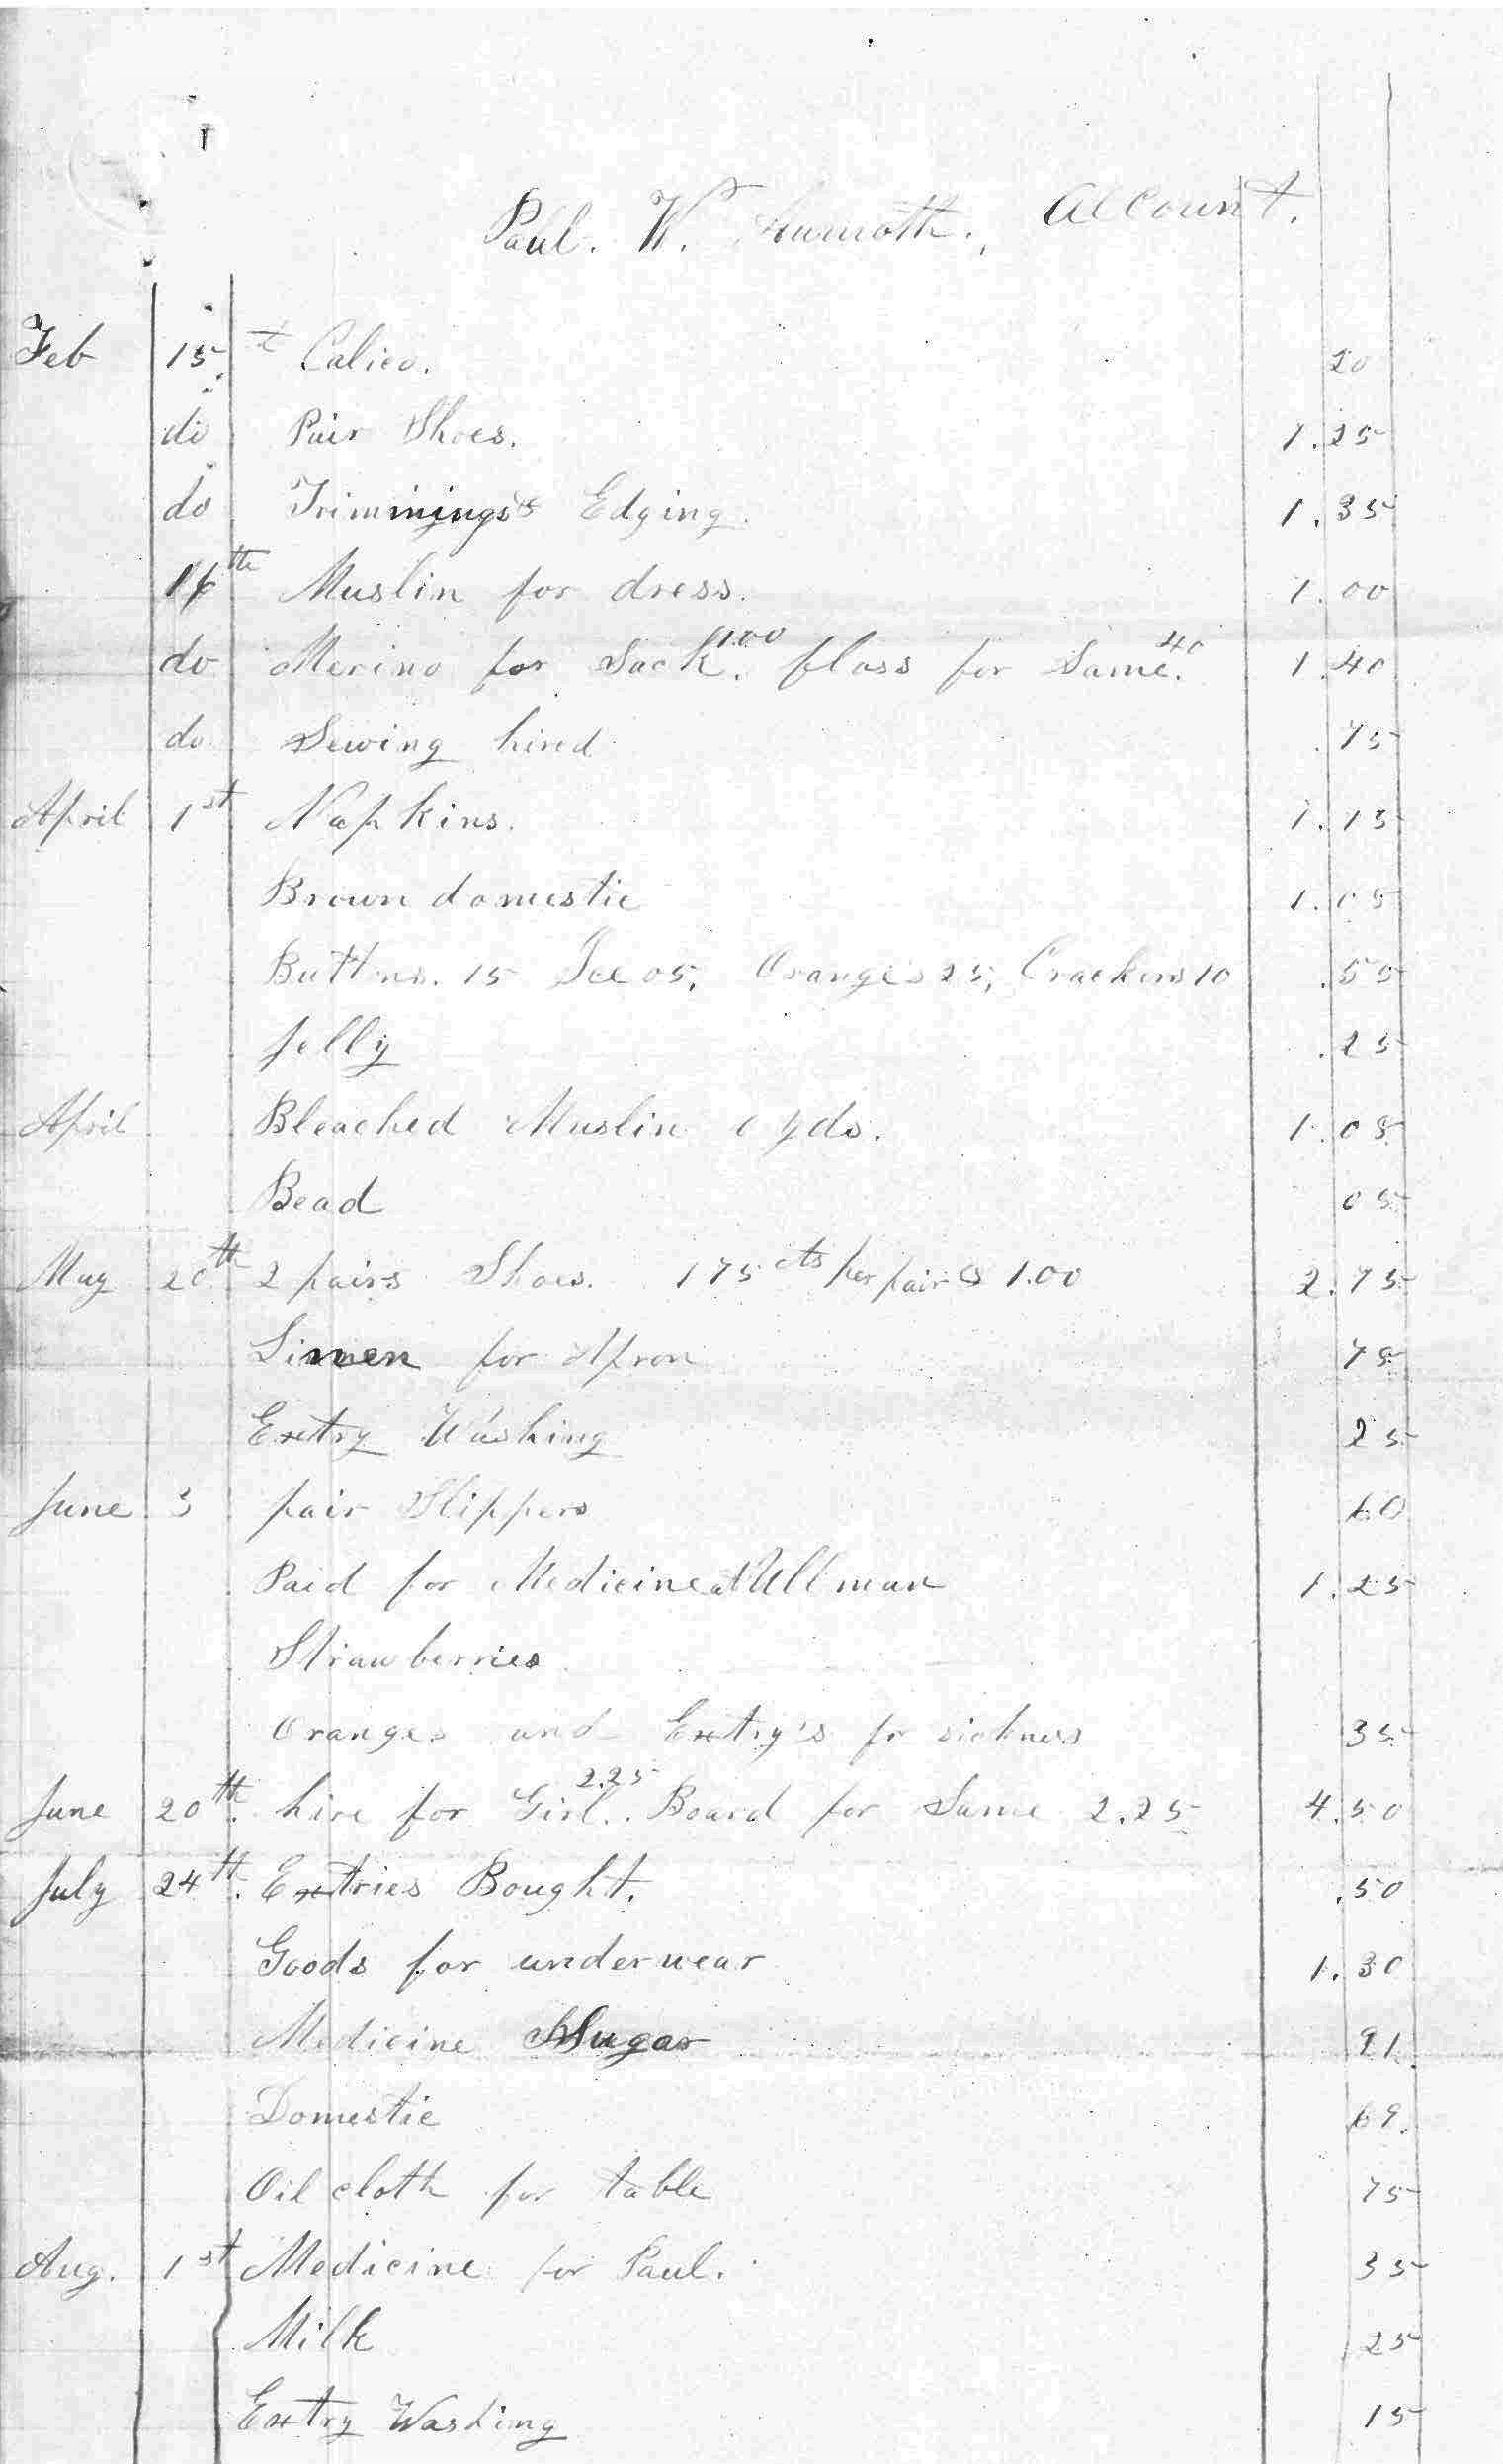 Paul. W. Account.
Feb 15 Calico. 20
do Pair Shoes. 1.25
do Trimmings & Edging. 1.35
16th Muslin for dress. 1.00
do Merino for Sack. 1.00 floss for Same. 40 1.40
do Sewing hired .75
April 1st Napkins. 1.15
Brown domestic 1.05
Buttons. 15 Ice 05, Oranges 25, Crackers 10 .55
Jelly .25
April Bleached Muslin yds. 1.05
Bead 05
May 20th 2 pairs Shoes. 175 cts per pair & 1.00 2.75
Linen for Apron 75
Extry Washing 25
June 3 pair Slippers 60
Paid for Medicine at Ullman 1.25
Strawberries
Oranges and Extry's for sickness 35
June 20th. hire for Girl. 2.25 Board for Same 2.25 4.50
July 24th. Extries Bought. .50
Goods for underwear 1.30
Medicine Sugar 91
Domestic 69
Oil cloth for table 75
Aug. 1st Medicine for Paul. 35
Milk 25
Extry Washing 15